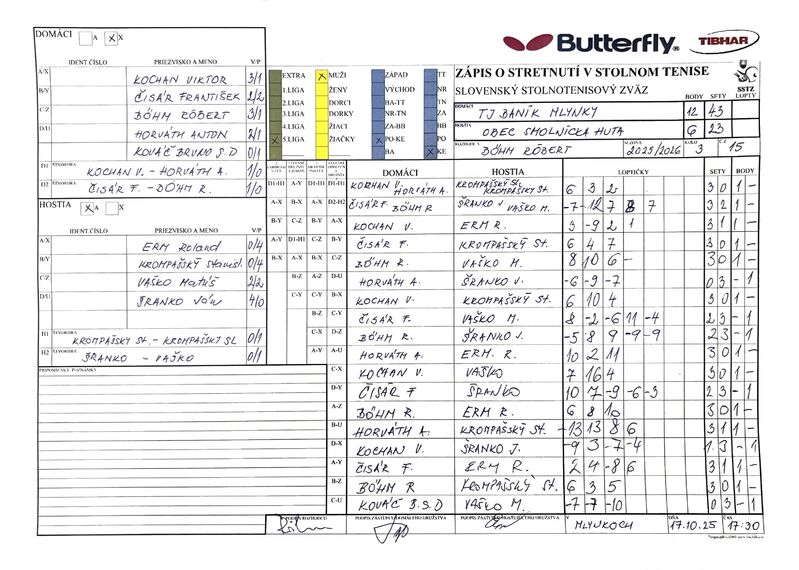 DOMÁCI A X
PRIEZVISKO A MENO V/P
IDENT ČÍSLO
A/X KOCHAN VIKTOR 3/1
B/Y ČISÁR FRANTIŠEK 2/2
C/Z BÖHM RÓBERT 3/1
D/U HORVÁTH ANTON 2/1
KOVÁČ BRUNO S.D 0/1
D1 ŠTVORHRA KOCHAN V. - HORVÁTH A. 1/0
D2 ŠTVORHRA ČISÁR F. - BÖHM R. 1/0
HOSTIA X A X
IDENT ČÍSLO PRIEZVISKO A MENO V/P
A/X ERM Roland 0/4
B/Y KROMPAŠSKÝ Stanisl. 0/4
C/Z VAŠKO Matúš 2/2
D/U ŠRANKO Ján 4/0
H1 ŠTVORHRA KROMPAŠSKÝ ST. - KROMPAŠSKÝ SL 0/1
H2 ŠTVORHRA ŠRANKO - VAŠKO 0/1
PRIPOMIENKY POZNÁMKY
Butterfly TIBHAR
EXTRA X MUŽI ZÁPAD TT
1.LIGA ŽENY VÝCHOD NR
2.LIGA DORCI BA-TT TN
3.LIGA DORKY NR-TN ZA
4.LIGA ŽIACI ZA-BB BB
X 5.LIGA ŽIAČKY X PO-KE PO
BA X KE
ZÁPIS O STRETNUTÍ V STOLNOM TENISE
SLOVENSKÝ STOLNOTENISOVÝ ZVÄZ
SSTZ
BODY SETY LOPTY
DOMÁCI TJ BANÍK MLYNKY 12 43
HOSTIA OBEC SMOLNÍCKA HUTA 6 23
BÖHM RÓBERT SEZÓNA 2025/2026 KOLO 3 15
DOMÁCI HOSTIA LOPTIČKY SETY BODY
D1-H1 A-Y D1-H1 D1-H1 KOCHAN V. HORVÁTH A. KROMPAŠSKÝ St. KROMPAŠSKÝ SL. 6 3 2 3 0 1 -
A-X B-X A-X D2-H2 ČISÁR F. BÖHM R ŠRANKO J VAŠKO M. -7 -12 7 8 7 3 2 1 -
B-Y C-Z B-Y A-X KOCHAN V. ERM R. 3 -9 2 1 3 1 1 -
A-Y D1-H1 C-Z B-Y ČISÁR F. KROMPAŠSKÝ St. 6 4 7 3 0 1 -
B-X A-X B-X C-Z BÖHM R. VAŠKO M. 8 10 6 - 3 0 1 -
B-Z A-Z D-U HORVÁTH A. ŠRANKO J. -6 -9 -7 0 3 - 1
C-Y C-Y B-X KOCHAN V. KROMPAŠSKÝ St. 6 10 4 3 0 1 -
B-Z C-Y ČISÁR F. VAŠKO M. 8 -2 -6 11 -4 2 3 - 1
C-X D-Z BÖHM R. ŠRANKO J. -5 8 9 -9 -9 2 3 - 1
A-Y A-U HORVÁTH A. ERM. R. 10 2 11 3 0 1 -
C-X KOCHAN V. VAŠKO 7 16 4 3 0 1 -
D-Y ČISÁR F ŠRANKO 10 7 -9 -6 -3 2 3 - 1
A-Z BÖHM R. ERM R. 6 8 10 3 0 1 -
B-U HORVÁTH A. KROMPAŠSKÝ St. -13 13 8 6 3 1 1 -
D-X KOCHAN V. ŠRANKO J. -9 3 -7 -4 1 3 - 1
A-Y ČISÁR F. ERM R. 2 4 -8 6 3 1 1 -
B-Z BÖHM R KROMPAŠSKÝ St. 6 3 5 3 0 1 -
C-U KOVÁČ B.S.D VAŠKO M. -7 -7 -10 0 3 - 1
PODPIS ROZHODCU PODPIS ZÁSTUPCU DOMÁCEHO DRUŽSTVA PODPIS ZÁSTUPCU HOSŤUJÚCEHO DRUŽSTVA V MLYNKOCH DŇA 17.10.25 ČAS 17:30